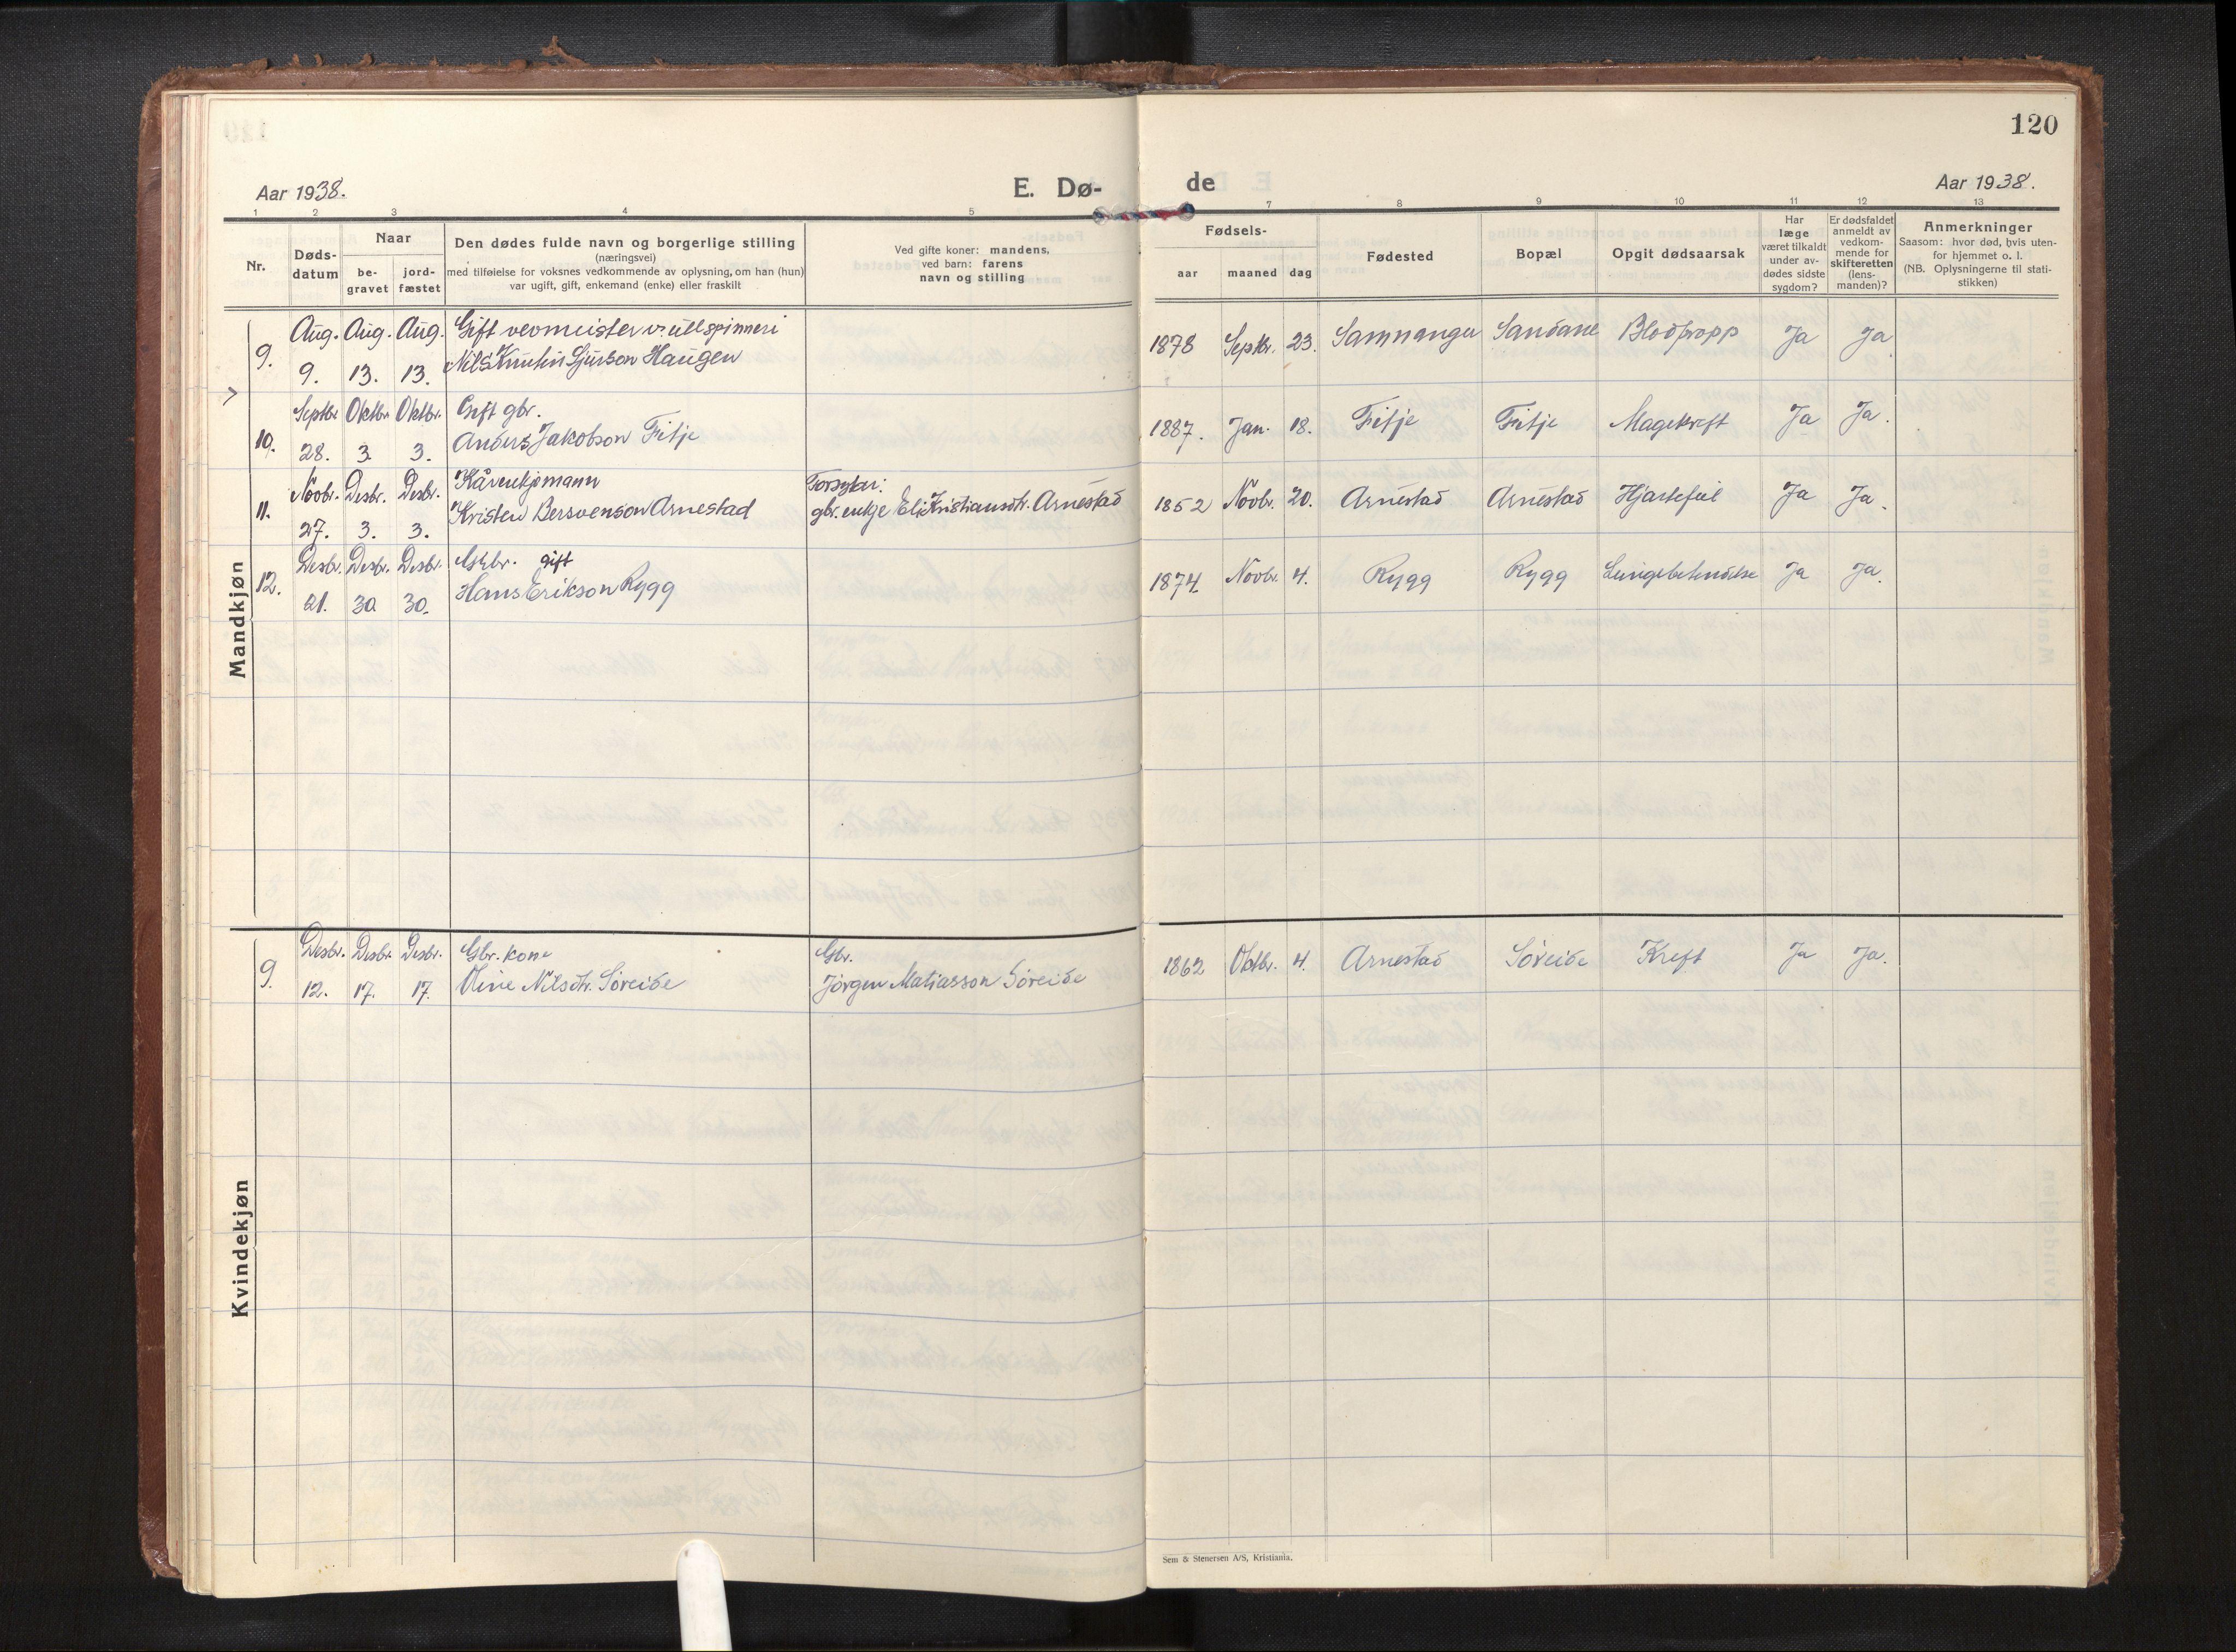 120
Aar 1938.
E. Dø-
de
Aar 1938.
1 2 3 4 5 7 8 9 10 11 12 13
Nr.
Døds-
datum
Naar
be-
gravet
jord-
fæstet
Den dødes fulde navn og borgerlige stilling
(næringsvei)
med tilføielse for voksnes vedkommende av oplysning, om han (hun)
var ugift, gift, enkemand (enke) eller fraskilt
Ved gifte koner: mandens,
ved barn: farens
navn og stilling
Fødsels-
aar
maaned
dag
Fødested
Bopæl
Opgit dødsaarsak
Har
læge
været tilkaldt
under av-
dødes sidste
sygdom?
Er dødsfaldet
anmeldt av
vedkom-
mende for
skifteretten
(lens-
manden)?
Anmerkninger
Saasom: hvor død, hvis uten-
for hjemmet o. l.
(NB. Oplysningerne til stati-
stikken)
Mandkjøn
Aug. Aug. Aug. Gift vevmeister v. ullspinneri
9. 9. 13. 13. Nils Knutin Sjurson Haugen
1878 Septbr. 23. Samnanger Sandane Blodpropp Ja Ja
Septbr. Oktbr. Oktbr. Gift gbr.
10. 28. 3. 3. Anders Jakobson Fitje
1887. Jan. 18. Fitje Fitje Magekreft Ja Ja.
Novbr. Desbr. Desbr. Kårenkjemann
11. 27. 3. 3. Kristen Bersvenson Arnestad
Forsytar:
gbr. enkje Eli Kristiansdtr. Arnestad
1852 Novbr. 20. Arnestad Arnestad Hjartefeil Ja Ja.
Desbr. Desbr. Desbr. Gbr. gift
12. 21. 30. 30. Hans Erikson Rygg
1874. Novbr. 4. Rygg Rygg Lungebetendelse Ja Ja.
Kvindekjøn
Desbr. Desbr. Desbr. Gbr. kone
9. 12. 17. 17. Oline Nilsdtr. Søreide
Gbr.
Jørgen Matiasson Søreide
1862 Oktbr. 4. Arnestad Søreide Kreft Ja Ja.
Sem & Stenersen A/S, Kristiania.